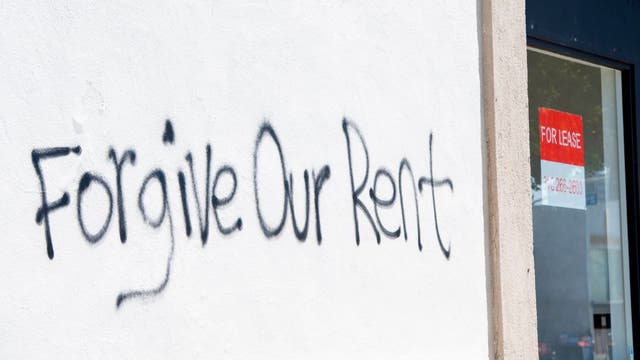 Forgive Our Rent
FOR LEASE